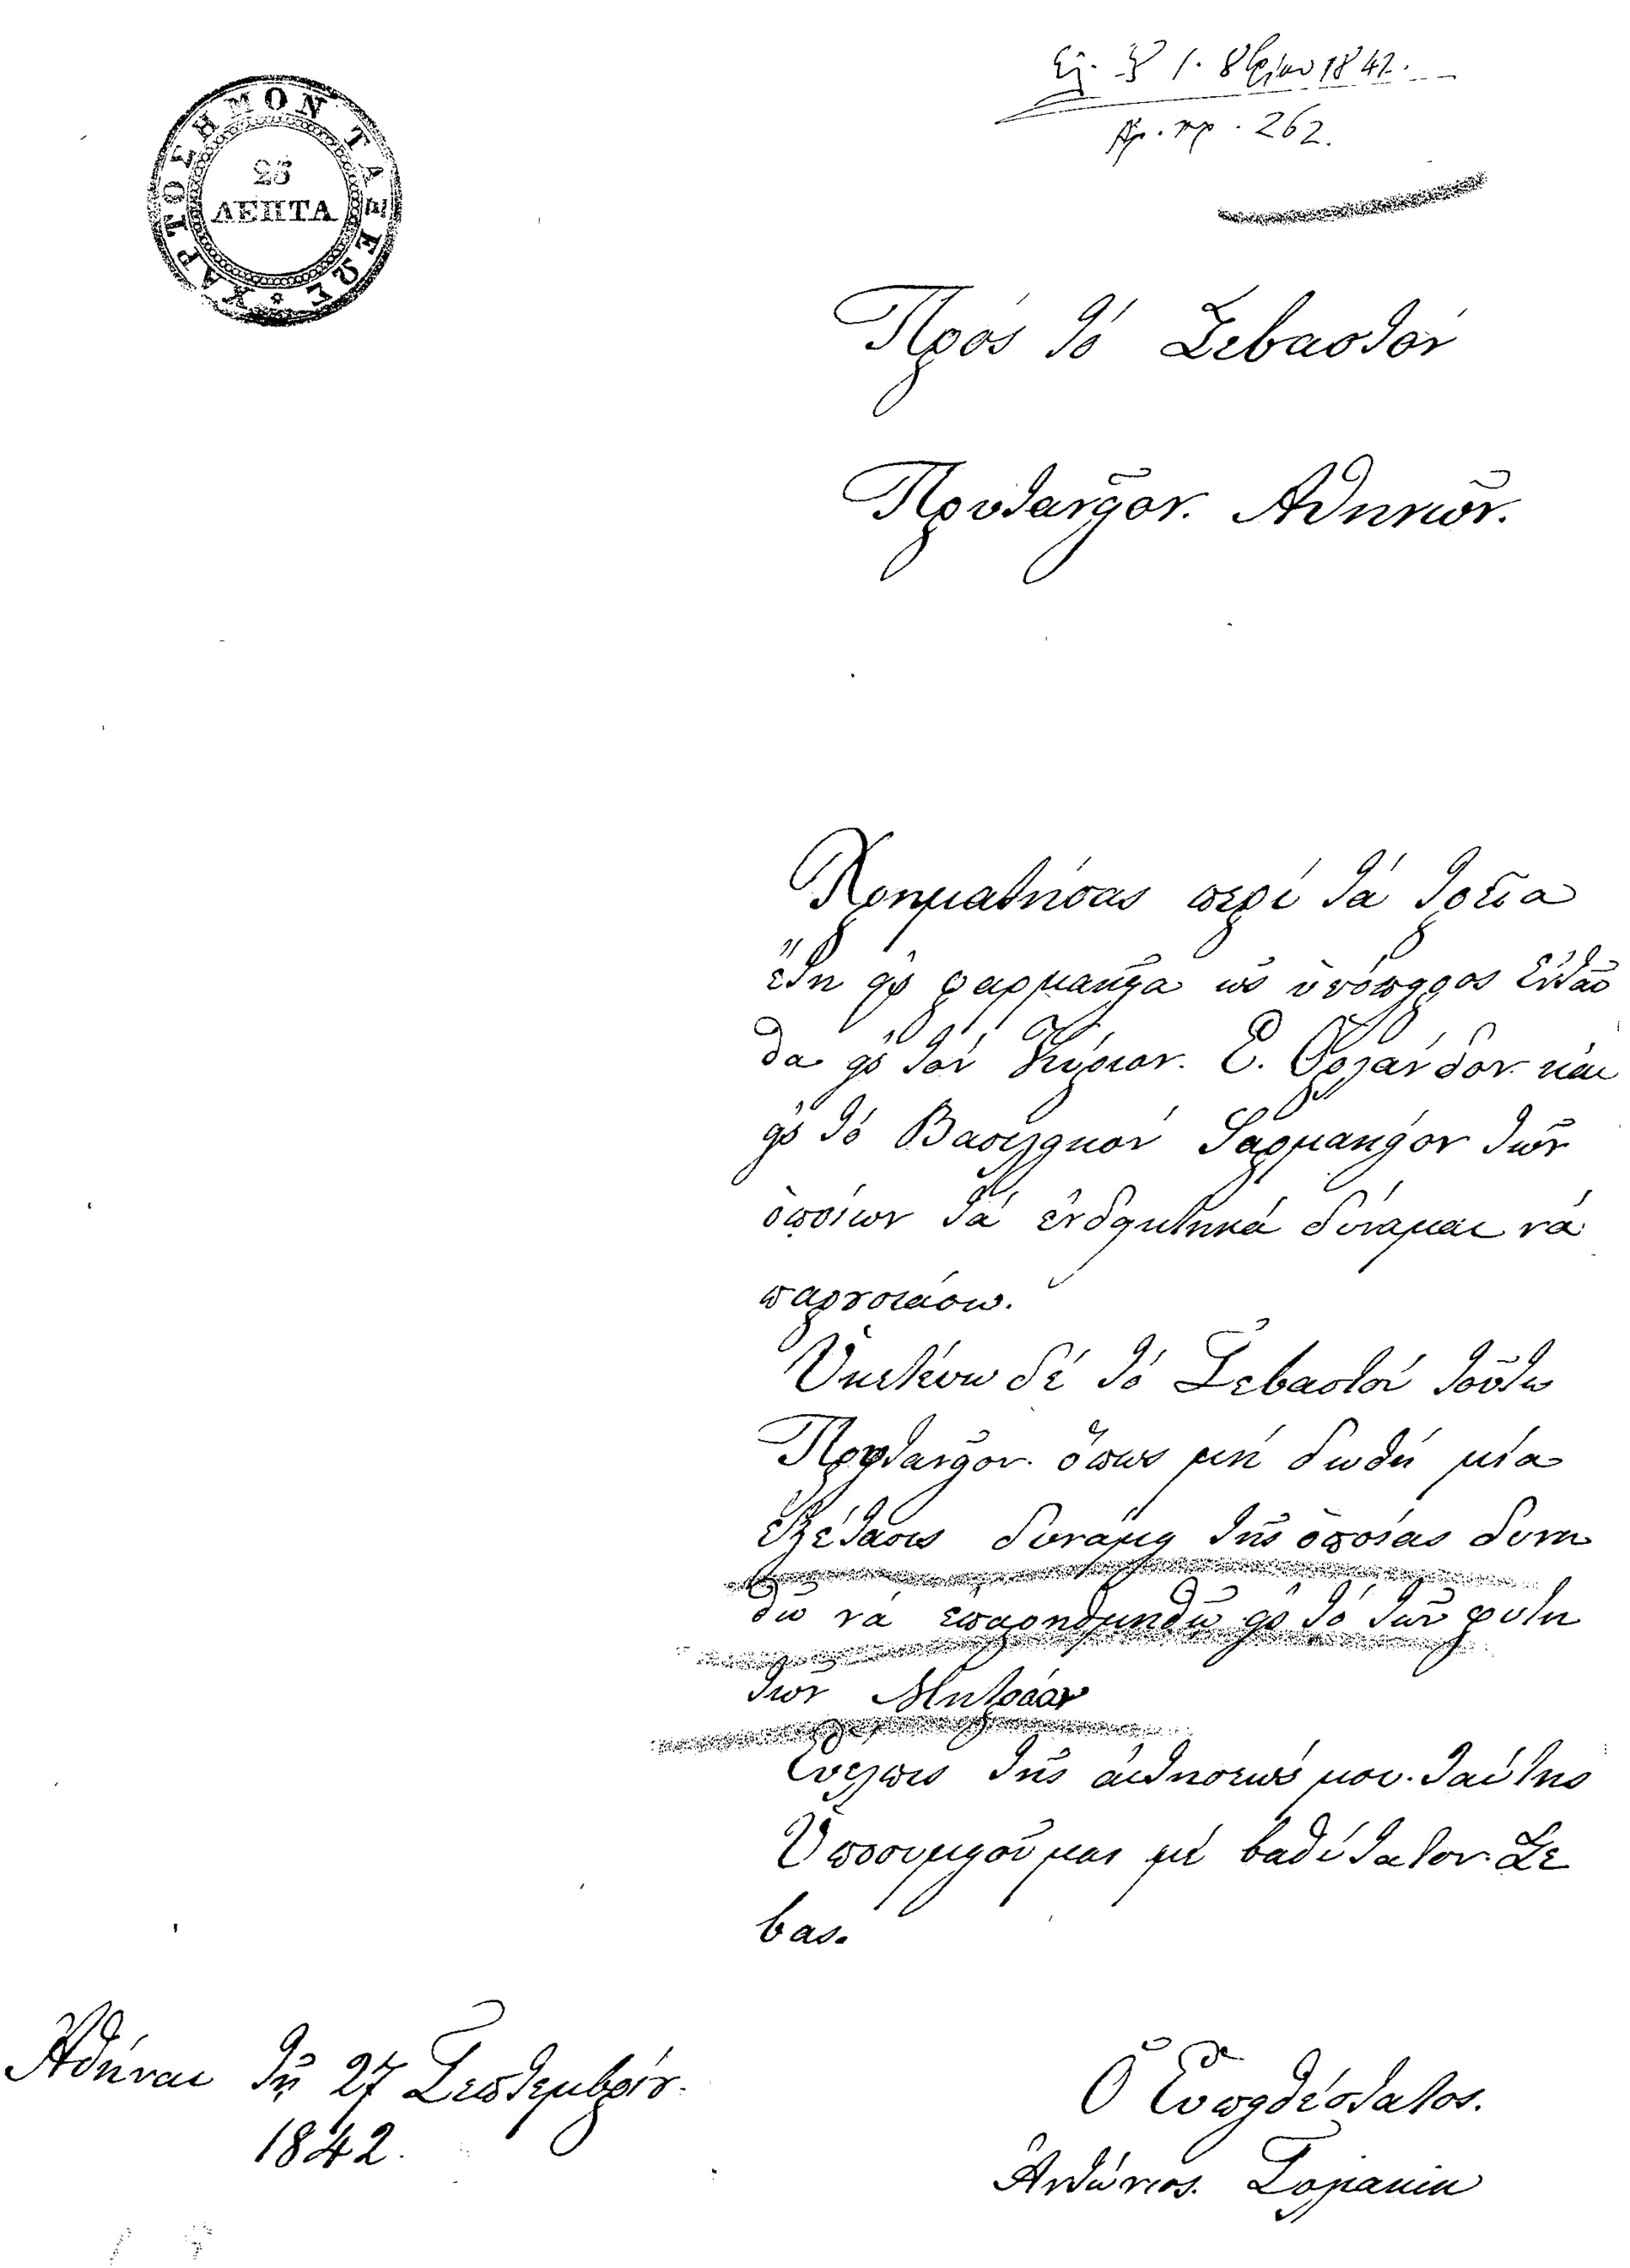 ΧΑΡΤΟΣΗΜΟΝ ΤΑΞΕΩΣ
25
ΛΕΠΤΑ
1. 8βρίου 1842.
Αρ. πρ. 262.
Πρός τό Σεβαστόν
Πρυτανεῖον. Αθηνῶν.
Χρηματήσας περί τά τρεῖα
ἔτη εἰς φαρμακεῖα ὡς ὑπόπειρος ἐνταῦ
θα εἰς τόν Κύριον. Ε. Ὀρλάνδον καί
εἰς τό Βασιλεικόν Φαρμακεῖον τῶν
ὁποίων τά ἐνδεικτηκά δύναμαι νά
παρουσιάσω.
Ὑκετεύω δέ τό Σεβαστόν τοῦτω
Πρυτανεῖον. ὅπως μή δωθή μία
ἐξέτασις δυνάμει τῆς ὁποίας δυνη
θῶ νά ἐπαρηθμηθῶ εἰς τό τῶν φυτη
τῶν Μητρῶον
Εὐελπις τῆς αἰτησεώς μου. ταύτης
Ὑποσημειοῦμαι μέ βαθύτατον. Σε
βας.
Ἀθήναι τῇ 27 Σεπτεμβρίου.
1842.
Ὁ Εὐπειθέστατος.
Ἀντώνιος.